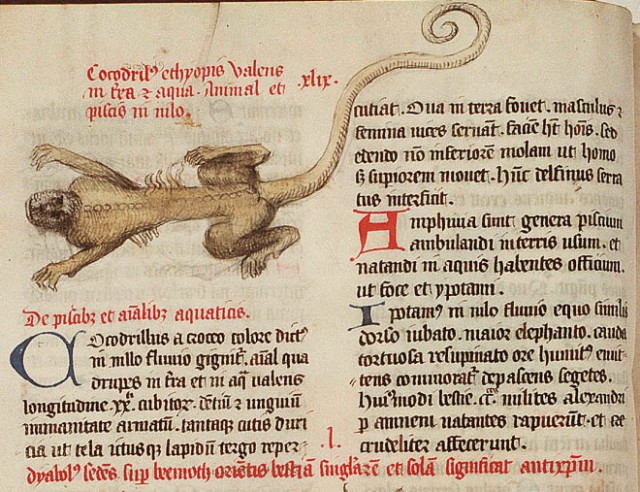 Cocodrilꝰ ethyopis valens
in tr̃a ⁊ aqua. Animal et
piscis in nilo.
.xlix.
De piscibꝫ et aĩalibꝫ aquaticis.
Cocodrillus a croceo colore dictꝰ
in nillo fluuio gignit᷑. aĩal qua
drupes in tr̃a et in aq̃ valens
longitudine .xx. cubitoꝝ. dẽtiũ ⁊ unguiũ
inmanitate armatũ. tantaqꝫ cutis duri
cia ut tela ictusqꝫ lapidũ tergo reper
cutiat. Qua in terra fouet. masculus ⁊
femina uices seruãt. faciẽ hñt hoĩs. sed
edendo nõ inferiorẽ molam ut homo
sꝫ supiorem mouet. hũc delfinus serra
tus interficit.
Amphiuia sunt genera pisciũm
ambulandi in terris usum. et
natandi in aquis habentes officium.
ut foce et ypotami.
Ipotamꝰ in nilo fluuio equo similis
dorso iubato. maior elephanto. cauda
tortuosa resupinato ore humitꝰ emit
tens commorat᷑ depascens segetes.
Huiꝰmodi bestie .cc. milites alexandri
p amnem natantes rapuerũt. et
crudeliter affecerunt.
.l.
Dyabolꝰ sedẽs sup beemoth oriẽtis bestiã singlãrẽ et solã significat antixp̃m.